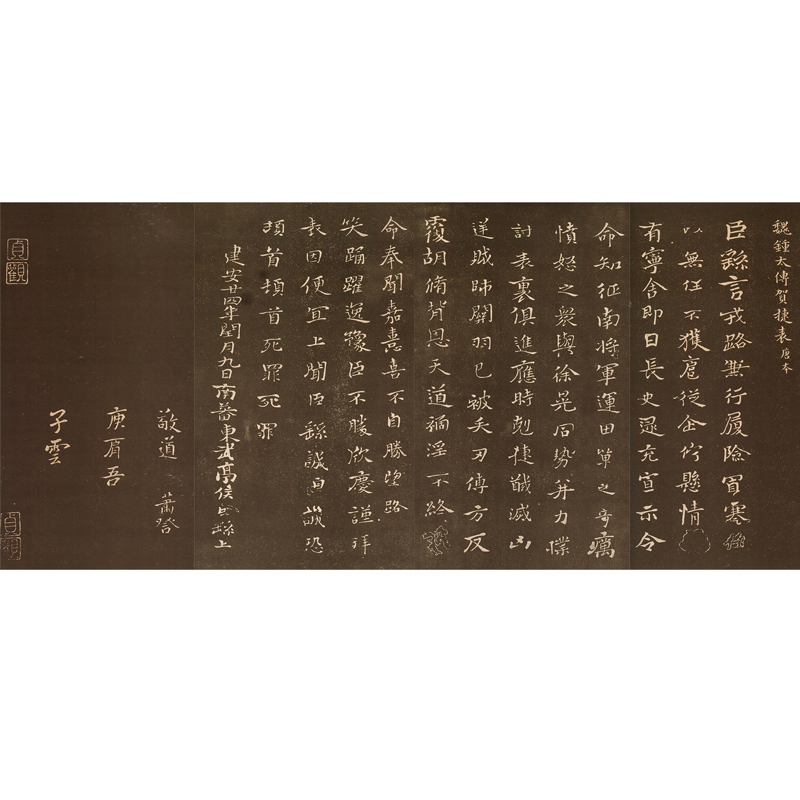 魏鍾太傅賀捷表唐本
臣繇言戎路兼行履險冒寒
以無任不獲扈從企佇懸情
有寧舍即日長史逯充宣示令
命知征南將軍運田單之奇厲
憤怒之眾與徐晃同勢并力撲
討表裏俱進應時剋捷馘滅凶
逆賊帥關羽已被矢刃傅方反
覆胡脩背恩天道禍淫不終
命奉聞嘉憙喜不自勝望路
笑踊躍逸豫臣不勝欣慶謹拜
表因便宜上聞臣繇誠皇誠恐
頓首頓首死罪死罪
建安廿四年閏月九日南蕃東武亭侯臣繇上
敬道
蕭
庚肩吾
子雲
貞觀
貞觀